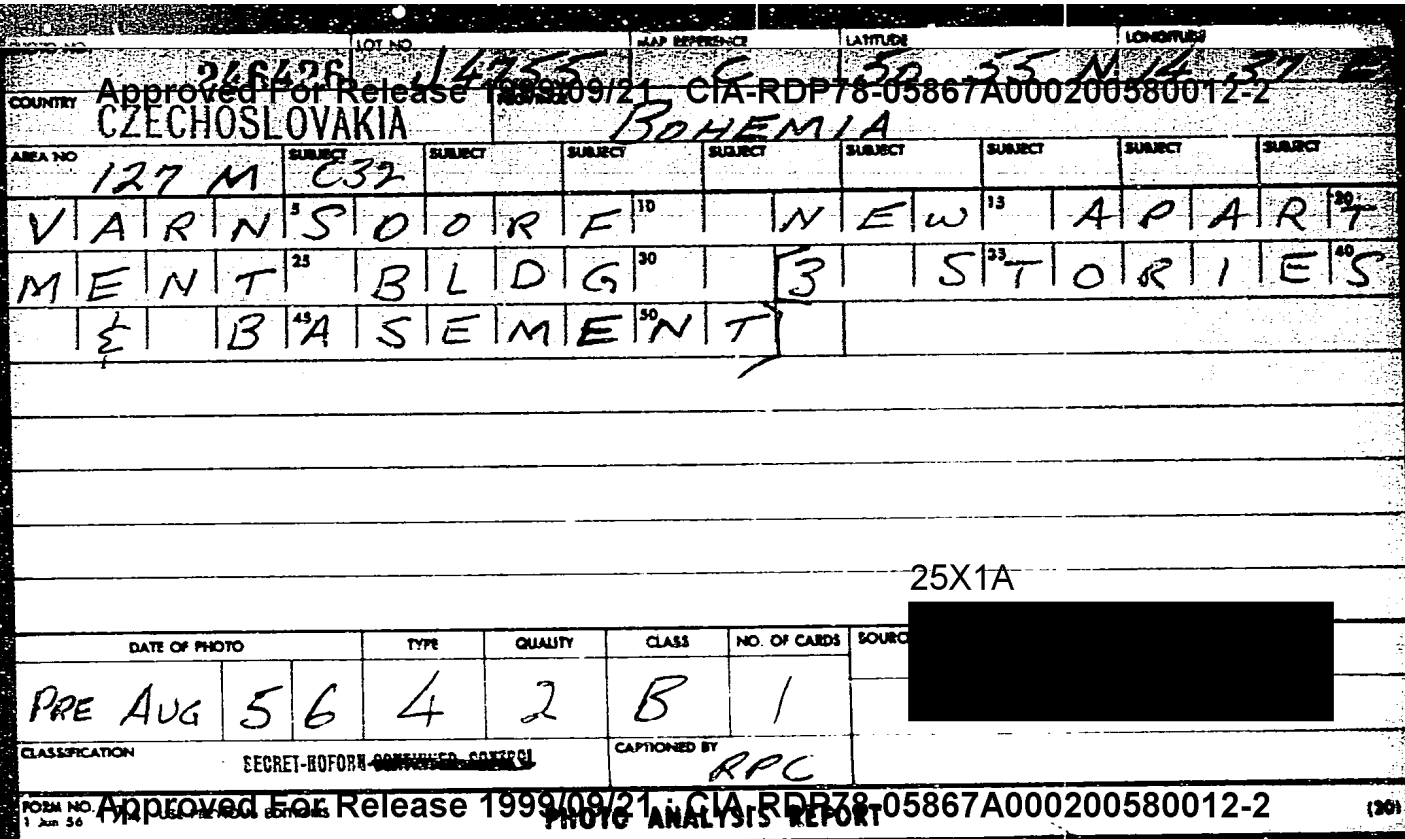 PHOTO NO. LOT NO. MAP REFERENCE LATITUDE LONGITUDE
246426 J4755 C 50 55 N 14 37 E
Approved For Release 1999/09/21 : CIA-RDP78-05867A000200580012-2
COUNTRY CZECHOSLOVAKIA BOHEMIA
AREA NO SUBJECT SUBJECT SUBJECT SUBJECT SUBJECT SUBJECT SUBJECT SUBJECT
127 M C32
VARNSDORF NEW APART
MENT BLDG (3 STORIES
& BASEMENT)
25X1A
DATE OF PHOTO TYPE QUALITY CLASS NO. OF CARDS SOURC
PRE AUG 56 4 2 B 1
CLASSIFICATION SECRET-NOFORN-CONTINUED CONTROL CAPTIONED BY RPC
FORM NO. USE PREVIOUS EDITIONS
1 Jun 56
Approved For Release 1999/09/21 : CIA-RDP78-05867A000200580012-2
PHOTO ANALYSIS REPORT (20)